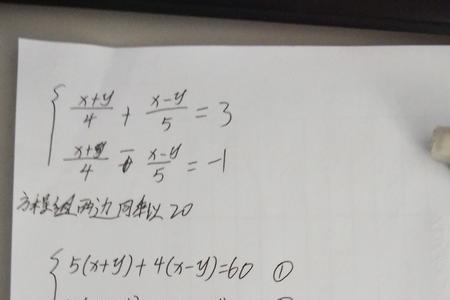 (x+y)/4 + (x-y)/5 = 3
(x+y)/4 - (x-y)/5 = -1
方程组两边同乘以20
5(x+y)+4(x-y)=60 ①